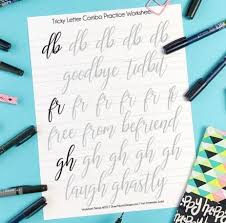 Tricky Letter Combo Practice Worksheet
db db db db db
goodbye tidbit
fr fr fr fr fr fr
free from befriend
gh gh gh gh gh gh
laugh ghastly
happy